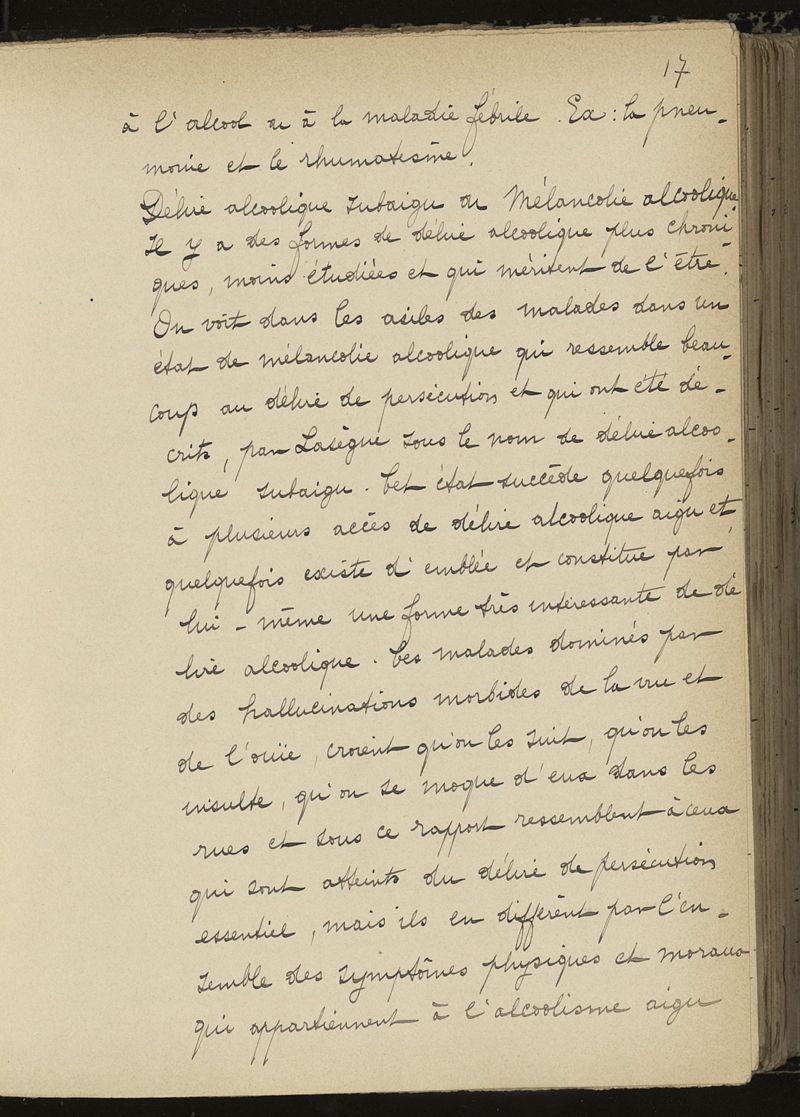 17
à l'alcool ou à la maladie fébrile. Ex: la pneu-
monie et le rhumatisme.
Délire alcoolique subaigu ou Mélancolie alcoolique.
Il y a des formes de délire alcoolique plus chroni-
ques, moins étudiées et qui méritent de l'être.
On voit dans les asiles des malades dans un
état de mélancolie alcoolique qui ressemble beau-
coup au délire de persécution et qui ont été dé-
crits, par Lasègue sous le nom de délire alcoo-
lique subaigu. Cet état succède quelquefois
à plusieurs accès de délire alcoolique aigu et
quelquefois existe d'emblée et constitue par
lui-même une forme très intéressante de dé
lire alcoolique. Ces malades dominés par
des hallucinations morbides de la vue et
de l'ouïe, croient qu'on les suit, qu'on les
insulte, qu'on se moque d'eux dans les
rues et sous ce rapport ressemblent à ceux
qui sont atteints du délire de persécution
essentiel, mais ils en diffèrent par l'en-
semble des symptômes physiques et moraux
qui appartiennent à l'alcoolisme aigu